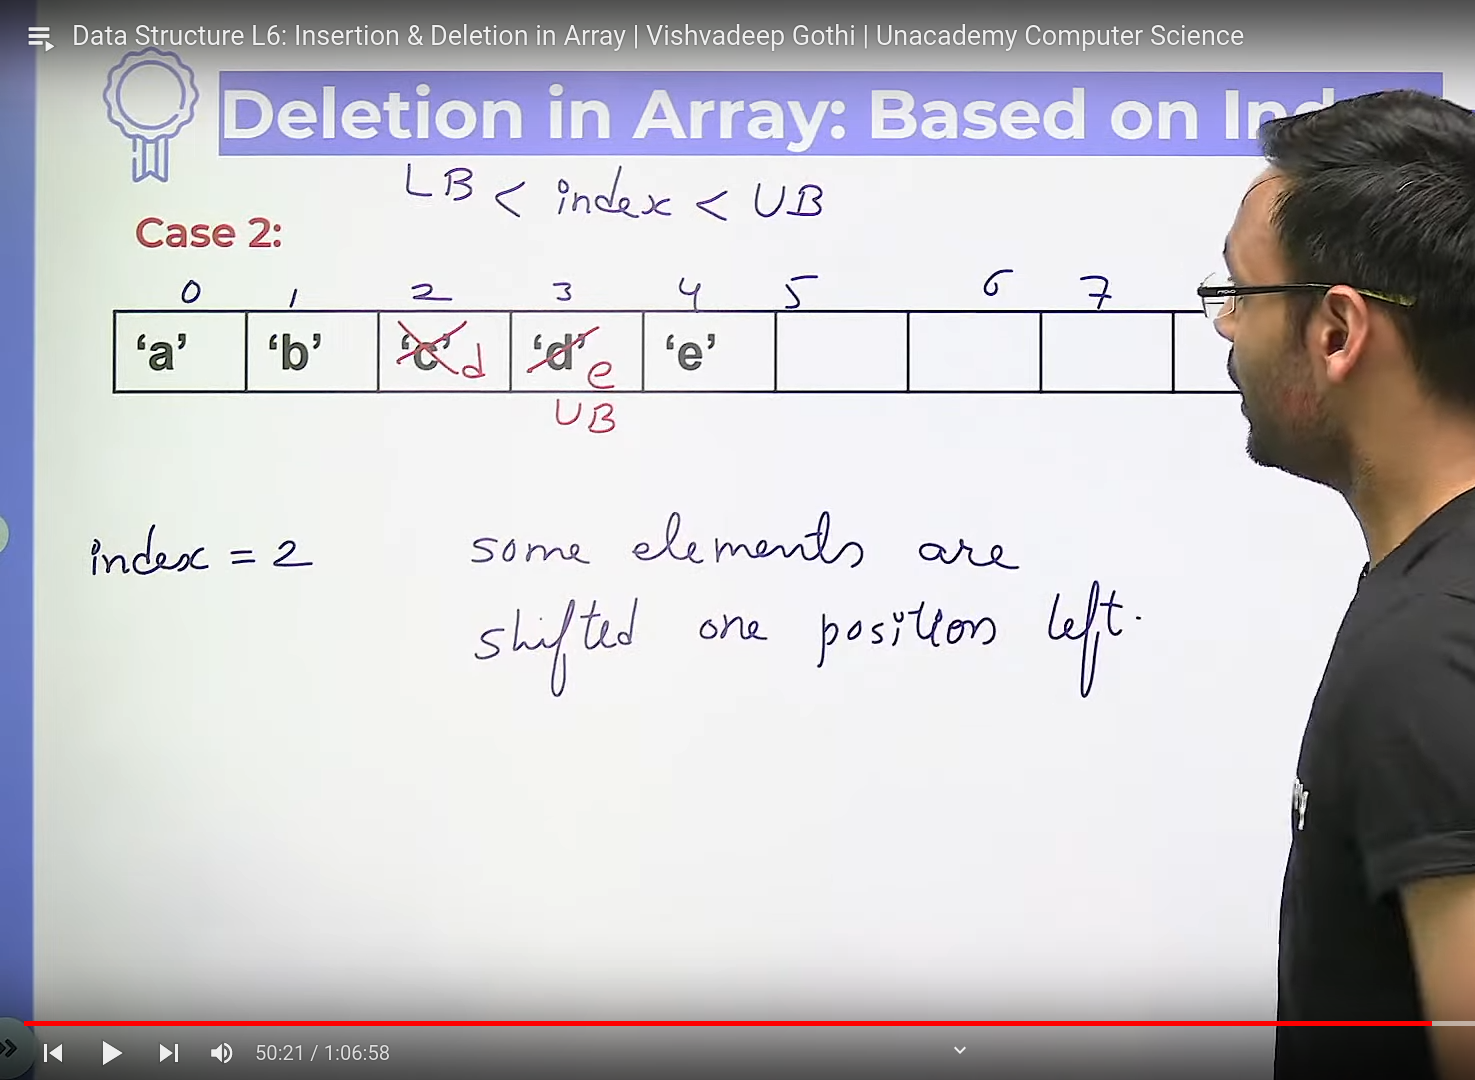 Data Structure L6: Insertion & Deletion in Array | Vishvadeep Gothi | Unacademy Computer Science
Deletion in Array: Based on
LB < index < UB
Case 2:
0 1 2 3 4 5 6 7
'a' 'b' 'c' d 'd' e 'e'
UB
index = 2
some elements are
shifted one position left.
50:21 / 1:06:58